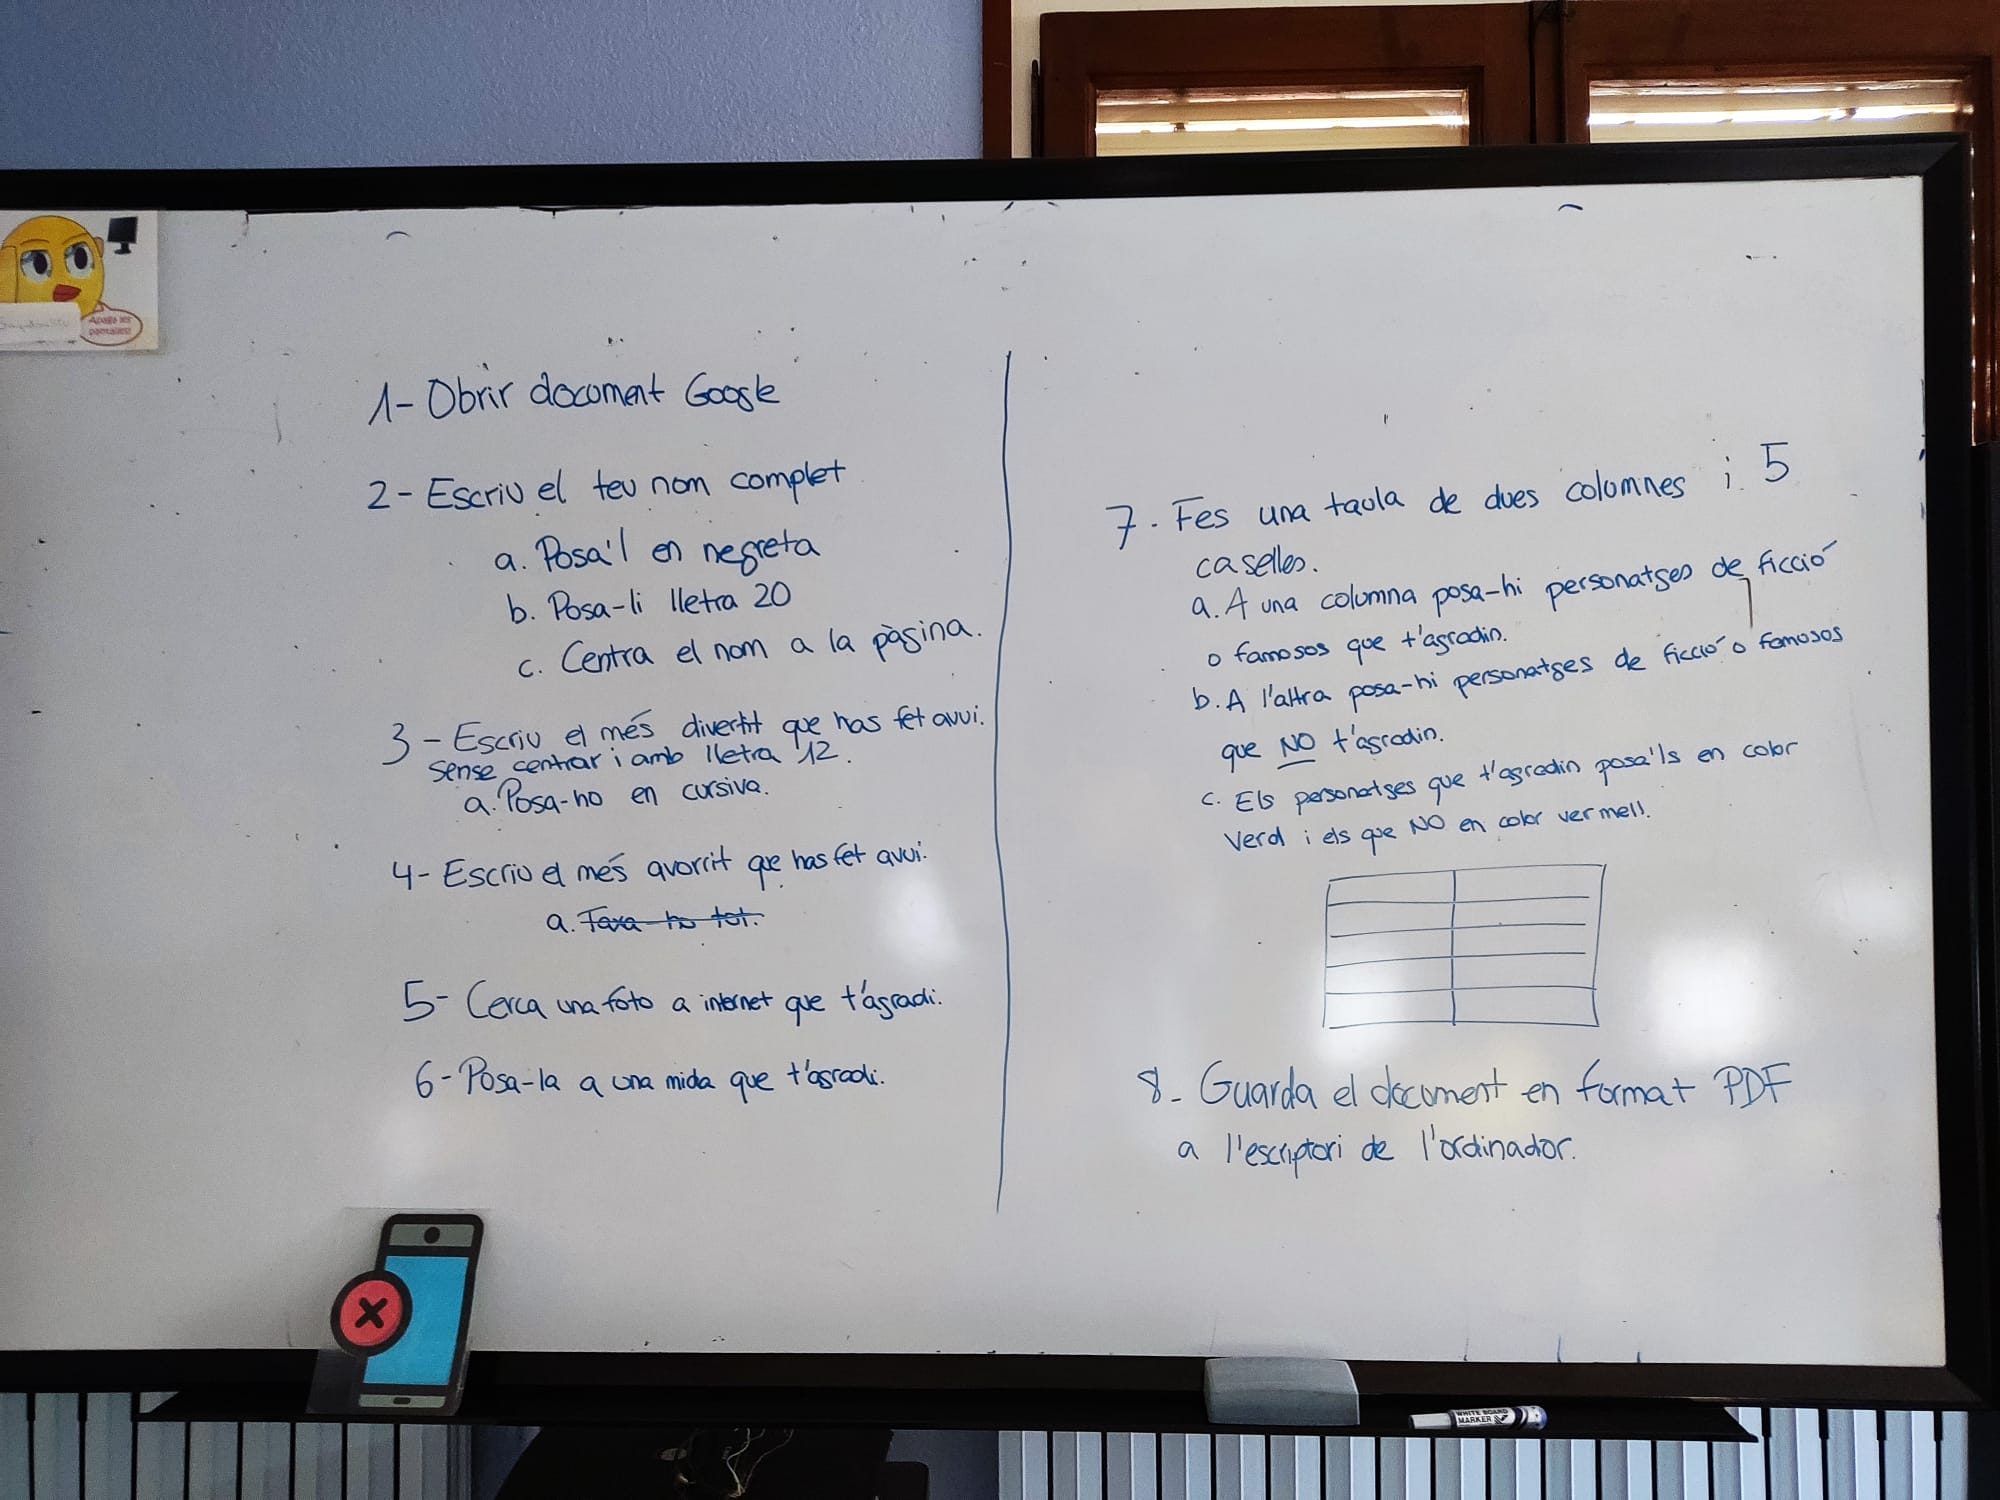 Apaga les
pantalles!
1- Obrir document Google
2- Escriu el teu nom complet
a. Posa'l en negreta
b. Posa-li lletra 20
c. Centra el nom a la pàgina.
3- Escriu el més divertit que has fet avui.
sense centrar i amb lletra 12.
a. Posa-ho en cursiva.
4- Escriu el més avorrit que has fet avui.
a. Taxa-ho tot.
5- Cerca una foto a internet que t'agradi.
6- Posa-la a una mida que t'agradi.
7. Fes una taula de dues columnes i 5
caselles.
a. A una columna posa-hi personatges de ficció
o famosos que t'agradin.
b. A l'altra posa-hi personatges de ficció o famosos
que NO t'agradin.
c. Els personatges que t'agradin posa'ls en color
Verd i els que NO en color vermell.
8- Guarda el document en format PDF
a l'escriptori de l'ordinador.
WHITE BOARD
MARKER